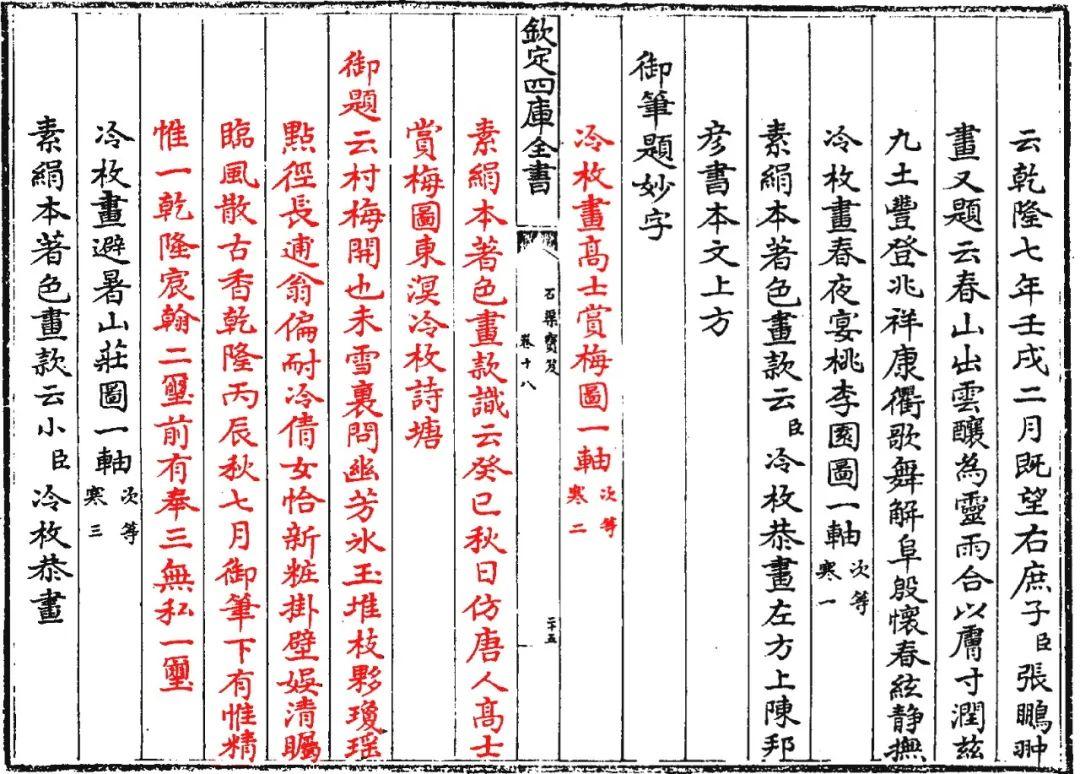 云乾隆七年壬戌二月既望右庶子臣張鵬翀
畫又題云春山出雲釀為靈雨合以膚寸潤茲
九土豐登兆祥康衢歌舞解阜殷懷春絃静撫
冷枚畫春夜宴桃李園圖一軸次等寒一
素絹本著色畫款云臣冷枚恭畫左方上陳邦
彦書本文上方
御筆題妙字
冷枚畫髙士賞梅圖一軸次等寒二
欽定四庫全書
石渠寳笈
卷十八
二十五
素絹本著色畫款識云癸巳秋日仿唐人髙士
賞梅圖東溟冷枚詩塘
御題云村梅開也未雪裏問幽芳氷玉堆枝夥瓊瑶
點徑長逋翁偏耐冷倩女恰新粧掛壁娱清矚
臨風散古香乾隆丙辰秋七月御筆下有惟精
惟一乾隆宸翰二璽前有奉三無私一璽
冷枚畫避暑山莊圖一軸次等寒三
素絹本著色畫款云小臣冷枚恭畫